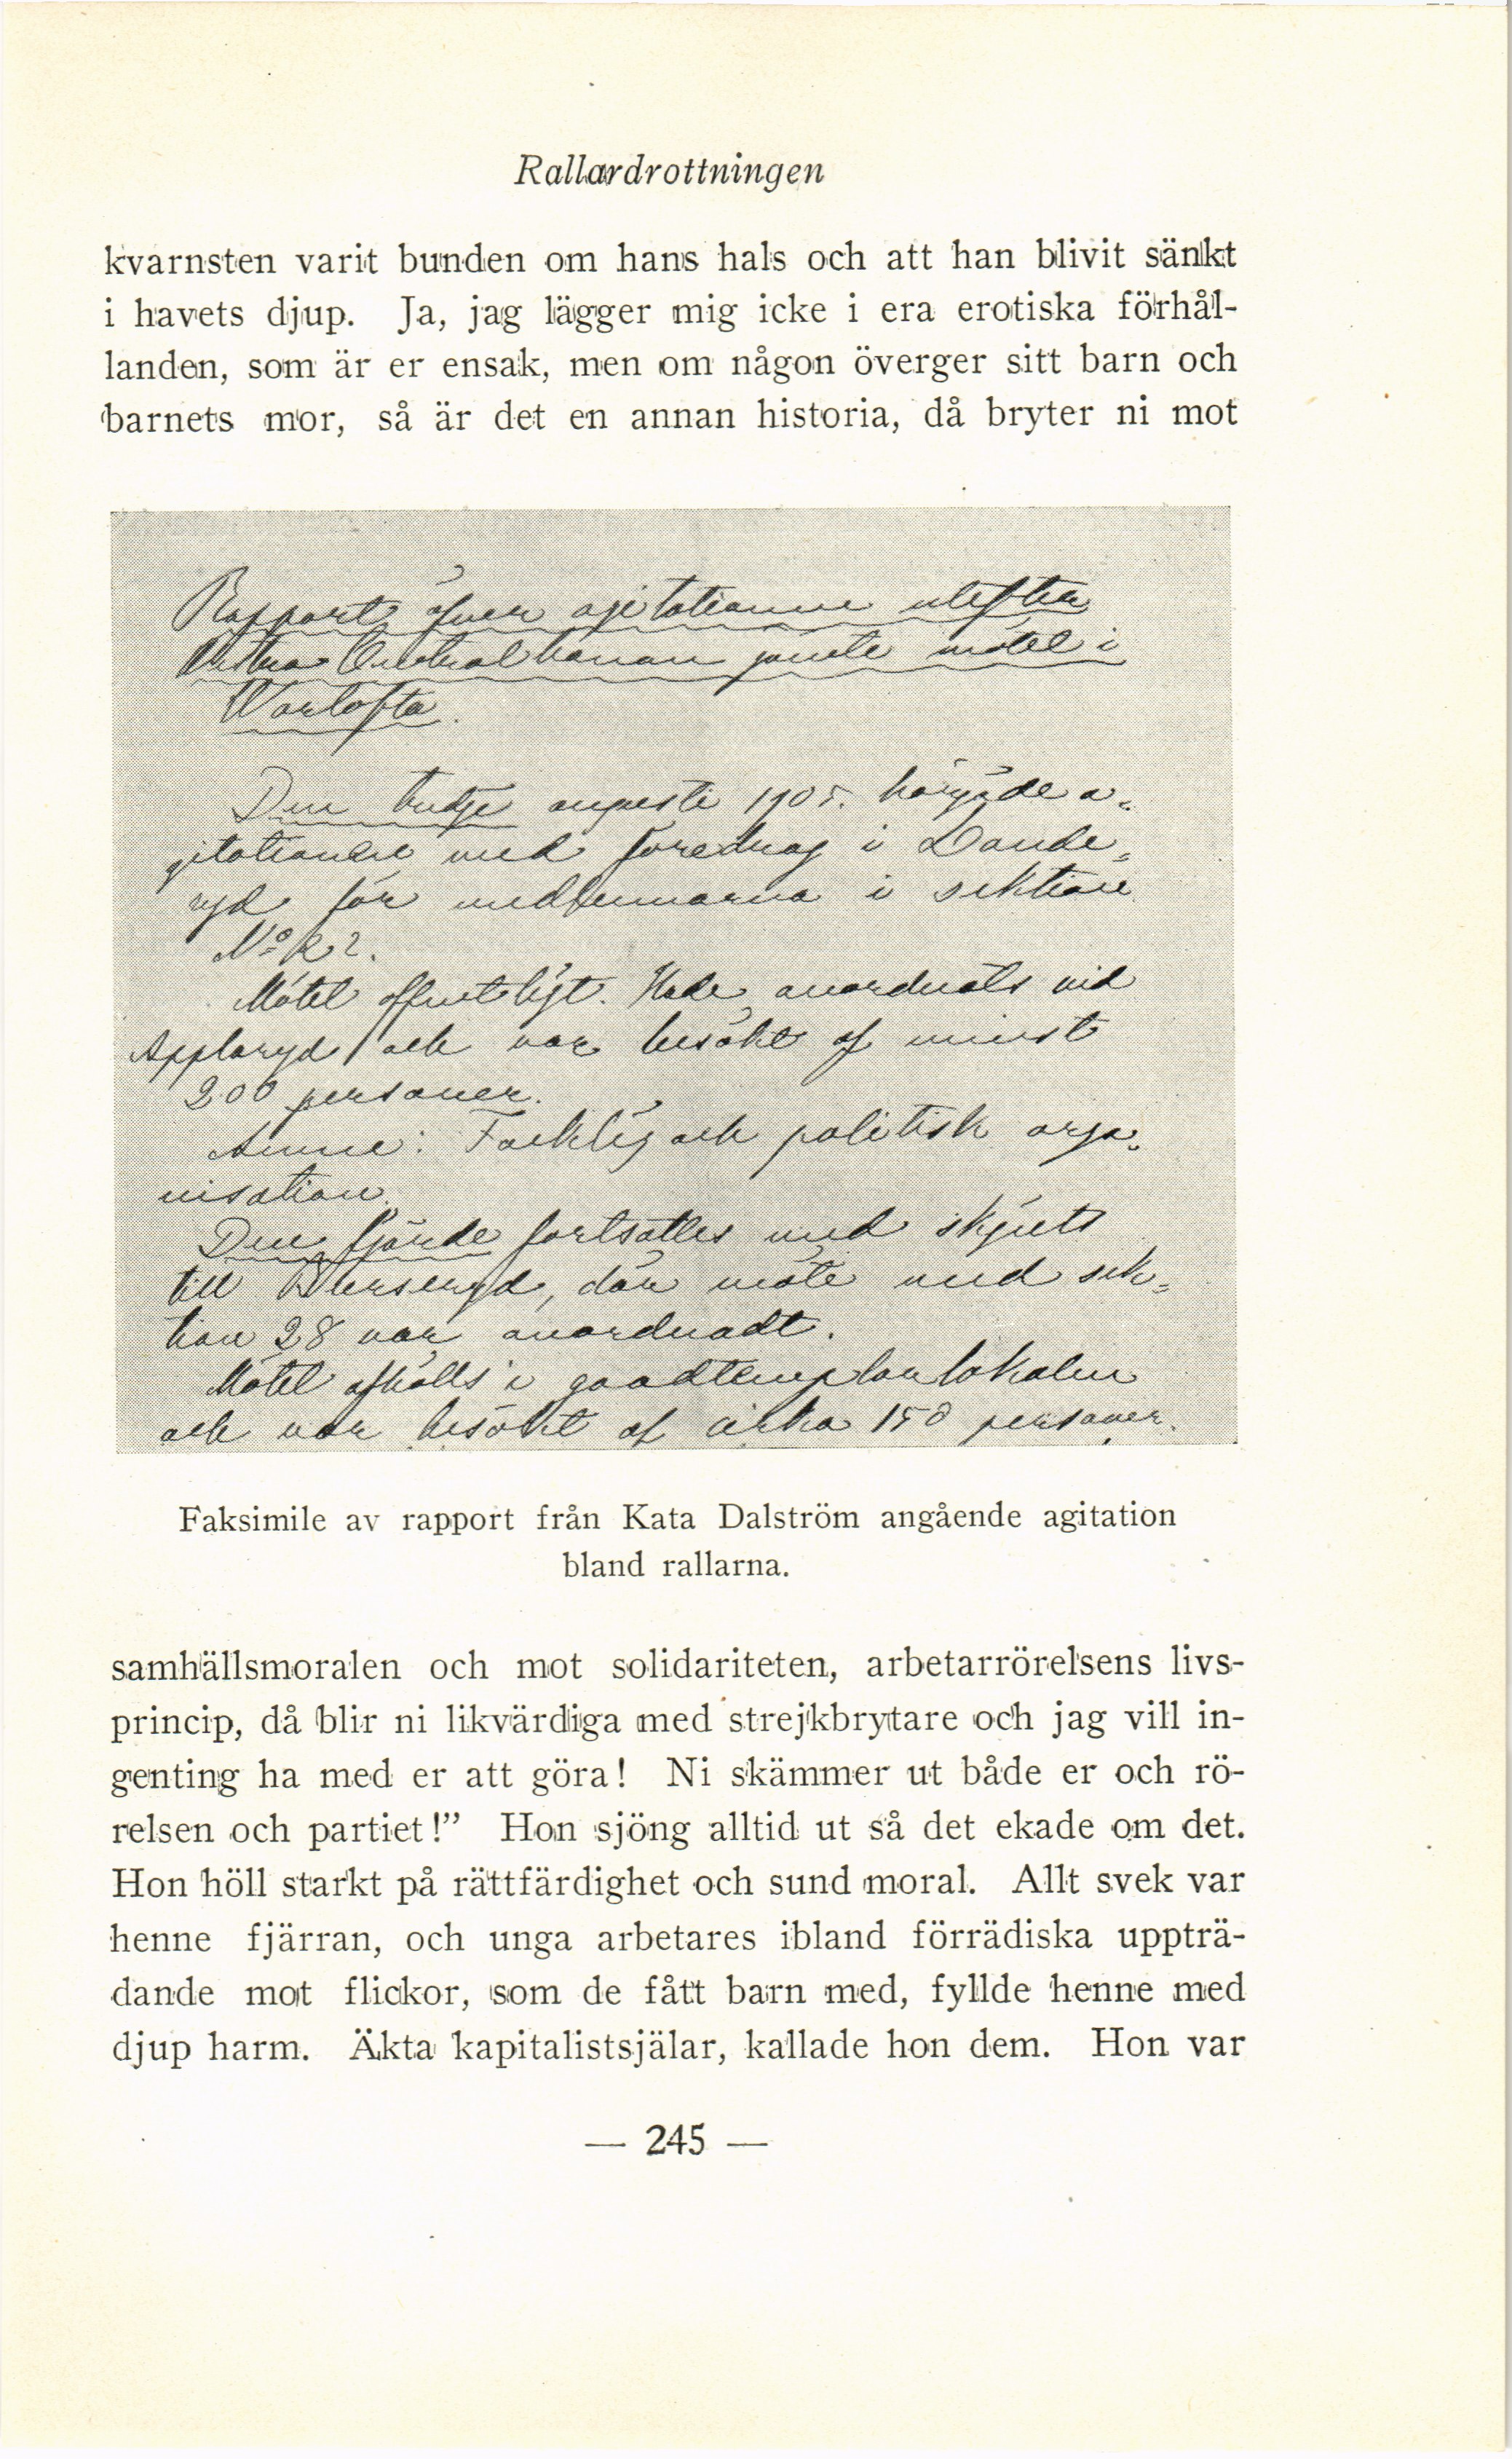 Rallardrottningen
kvarnsten varit bunden om hans hals och att han blivit sänkt
i havets djup. Ja, jag lägger mig icke i era erotiska förhål-
landen, som är er ensak, men om någon överger sitt barn och
barnets mor, så är det en annan historia, då bryter ni mot
Rapport öfver agitationen utefter
Östra Centralbanan jemte mötet i
Wartofta.
Den tredje augusti 1905. började a-
gitationen med föredrag i Dande-
ryd för medlemmarna i sektion
No
Mötet offentligt. Hade anordnats vid
Applaryd och var besökt af minst
200 personer.
Ämne: Facklig och politisk orga-
nisation.
Den fjärde fortsattes med skjuts
till där möte med sek-
tion 28 var anordnadt.
Mötet afhölls i goodtemplarlokalen
och var besökt af cirka 150 personer.
Faksimile av rapport från Kata Dalström angående agitation
bland rallarna.
samhällsmoralen och mot solidariteten, arbetarrörelsens livs-
princip, då blir ni likvärdiga med strejkbrytare och jag vill in-
genting ha med er att göra! Ni skämmer ut både er och rö-
relsen och partiet!” Hon sjöng alltid ut så det ekade om det.
Hon höll starkt på rättfärdighet och sund moral. Allt svek var
henne fjärran, och unga arbetares ibland förrädiska uppträ-
dande mot flickor, som de fått barn med, fyllde henne med
djup harm. Äkta kapitalistsjälar, kallade hon dem. Hon var
— 245 —